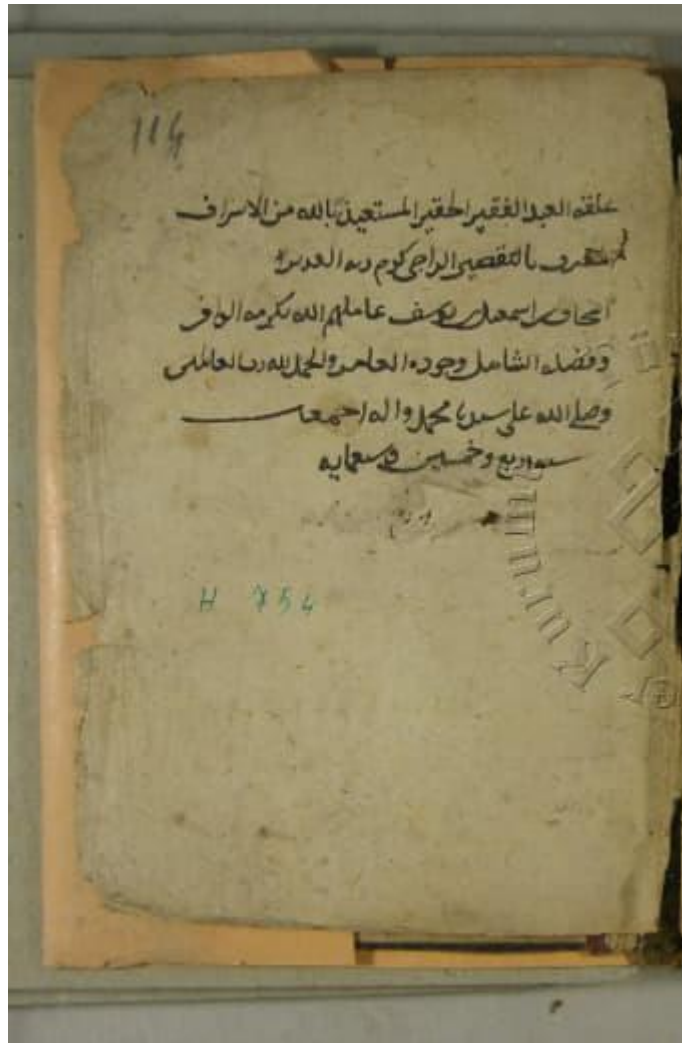 114
علقه العبد الفقير الحقير المستعين بالله من الاسراف
المعترف بالتقصير الراجى كرم ربه القدير
اسحاق بن اسمعيل بن يوسف عاملهم الله بكرمه الوافر
وفضله الشامل وجوده العامر والحمد لله رب العالمين
وصلى الله على سيدنا محمد واله اجمعين
سنه اربع وخمسين وسبعمايه
H 754